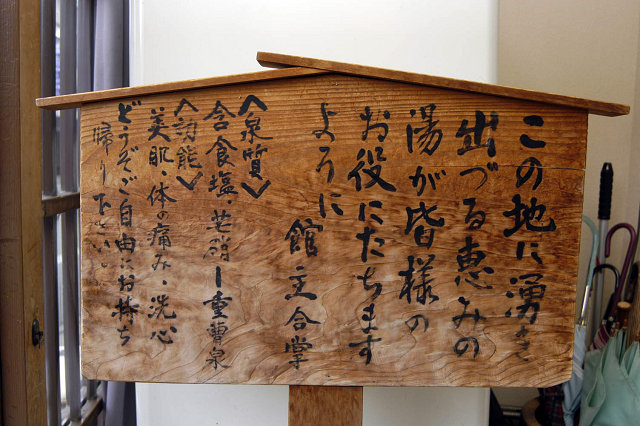 この地に湧き
出づる恵みの
湯が皆様の
お役にたちます
ように
館主合掌
〈泉質〉
含食塩・芒硝ー重曹泉
〈効能〉
美肌・体の痛み・洗心
どうぞご自由にお持ち
帰り下さい。